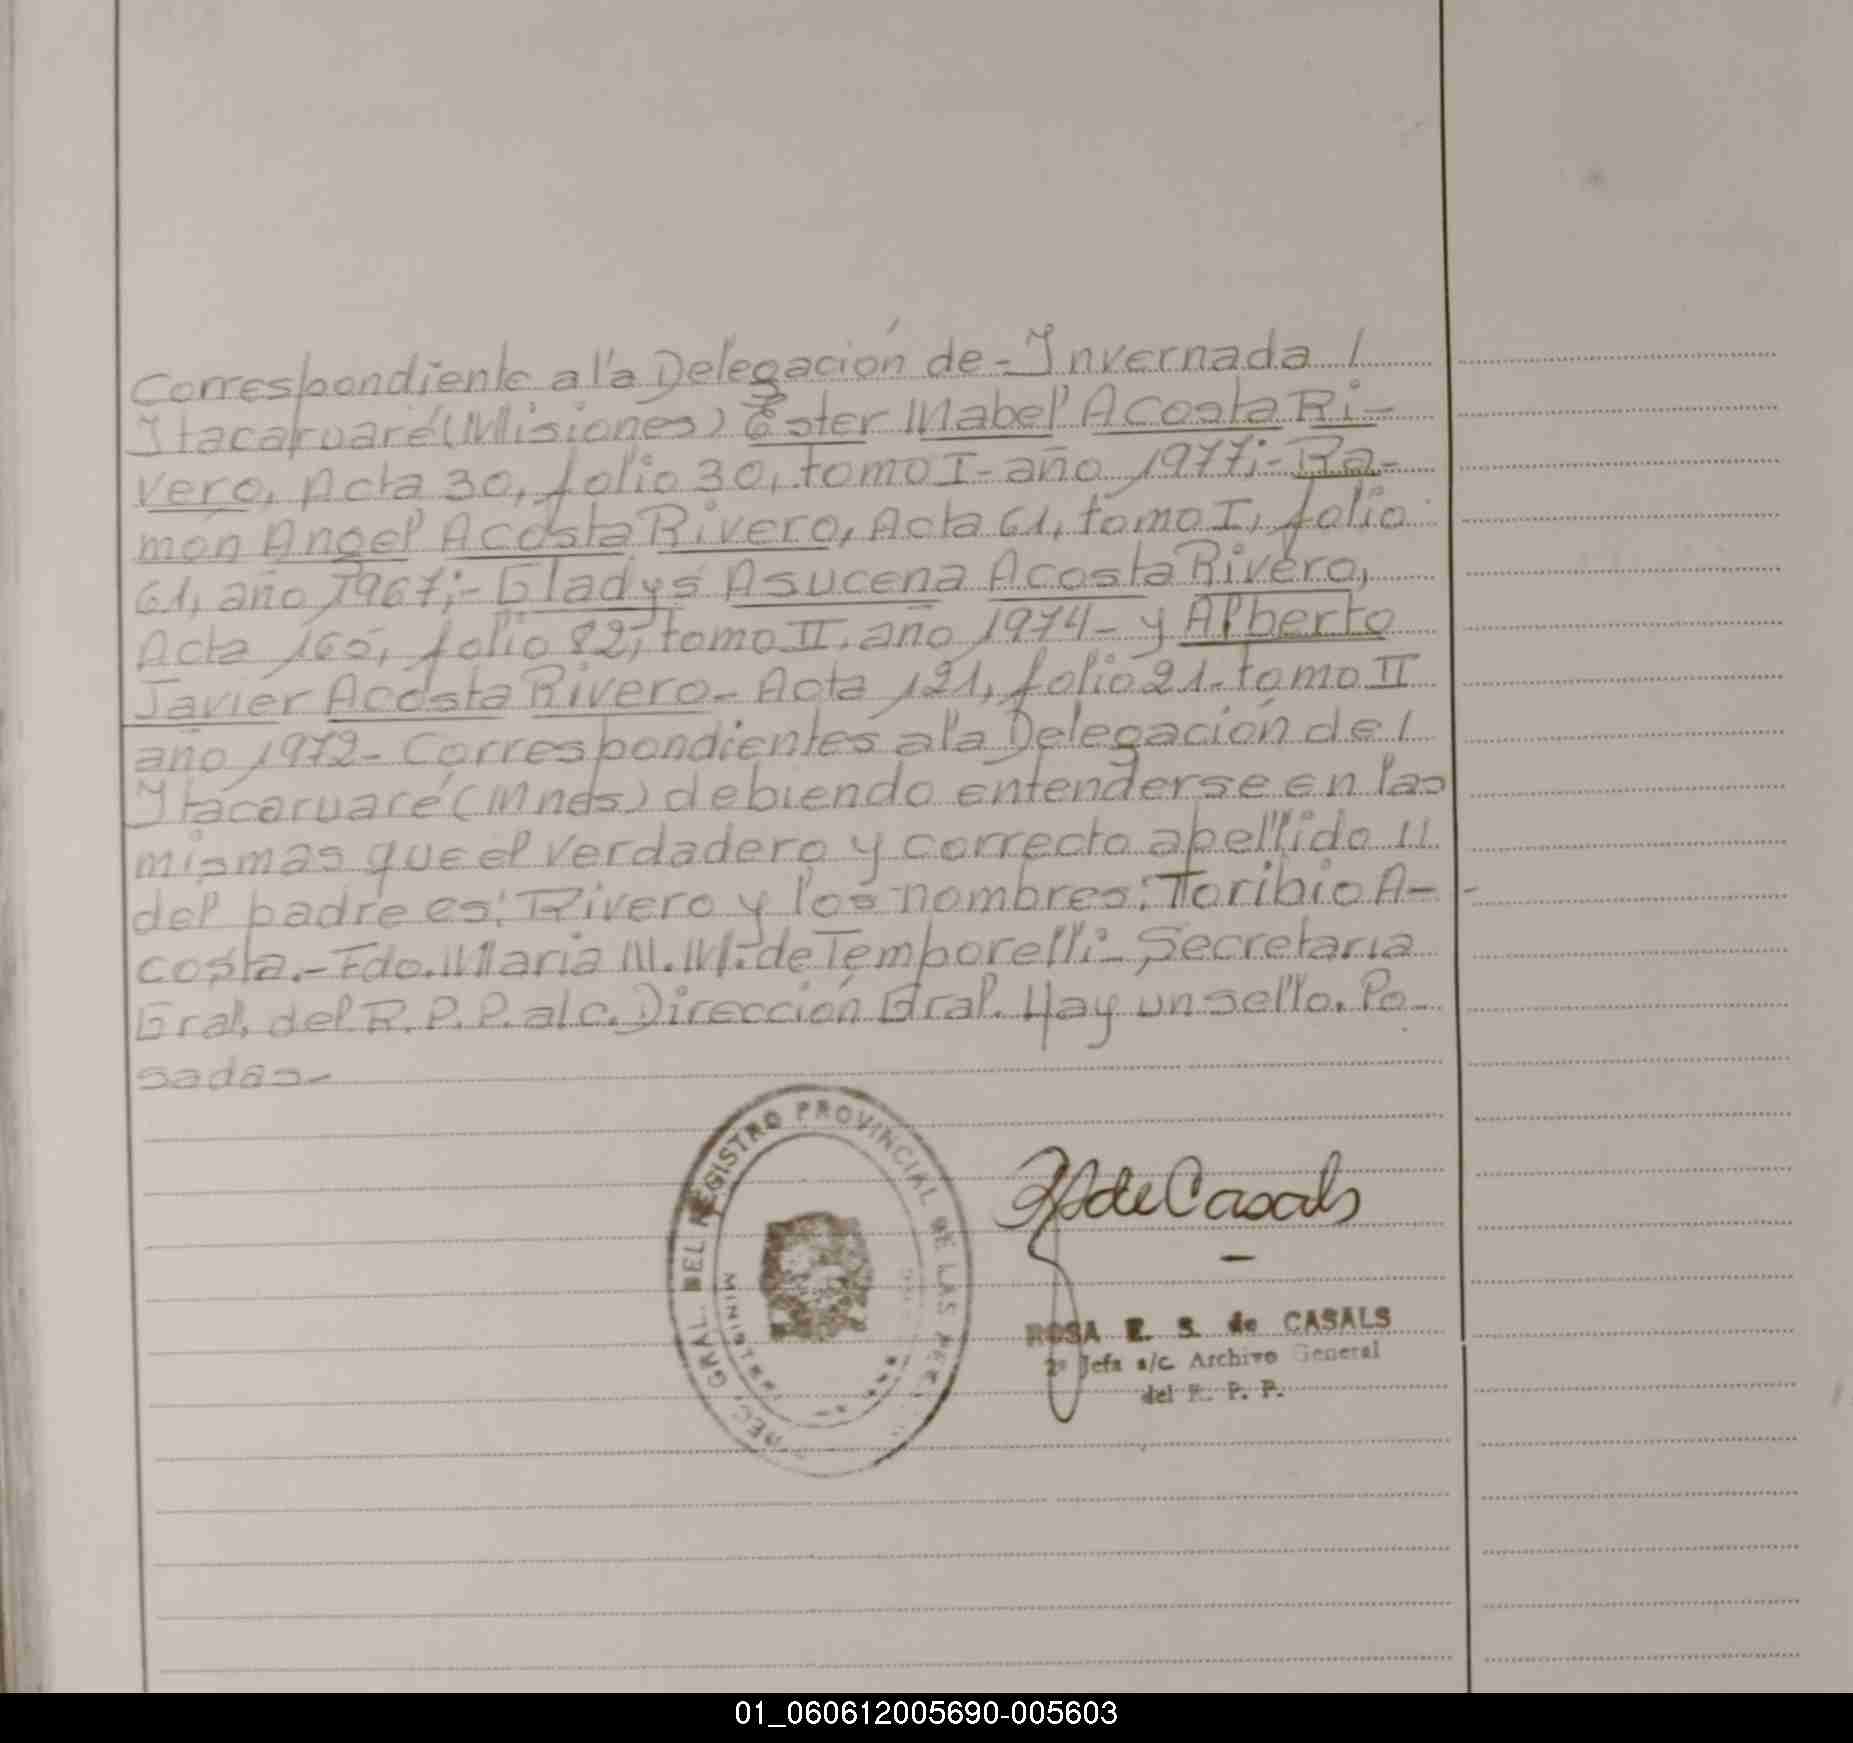 Correspondiente a la Delegación de - Invernada /
Itacaruaré (Misiones) Ester Mabel Acosta Ri-
vero, Acta 30, folio 30, tomo I - año 1977; - Ra-
món Angel Acosta Rivero, Acta 61, tomo I, folio
61, año 1967; - Gladys Asucena Acosta Rivero,
Acta 165, folio 82, tomo II, año 1974 - y Alberto
Javier Acosta Rivero - Acta 121, folio 21 - tomo II
año 1972 - Correspondientes a la Delegación de /
Itacaruaré (Mnes) debiendo entenderse en las
mismas que el verdadero y correcto apellido //
del padre es: Rivero y los nombres: Toribio A-
costa. - Fdo. Maria M. M. de Temporelli - Secretaria
Gral. del R. P. P. a/c. Dirección Gral. Hay un sello. Po-
sadas -
GRAL. DEL REGISTRO PROVINCIAL DE LAS
de Casals
ROSA E. S. de CASALS
2º Jefa a/c. Archivo General
del R. P. P.
01_060612005690-005603